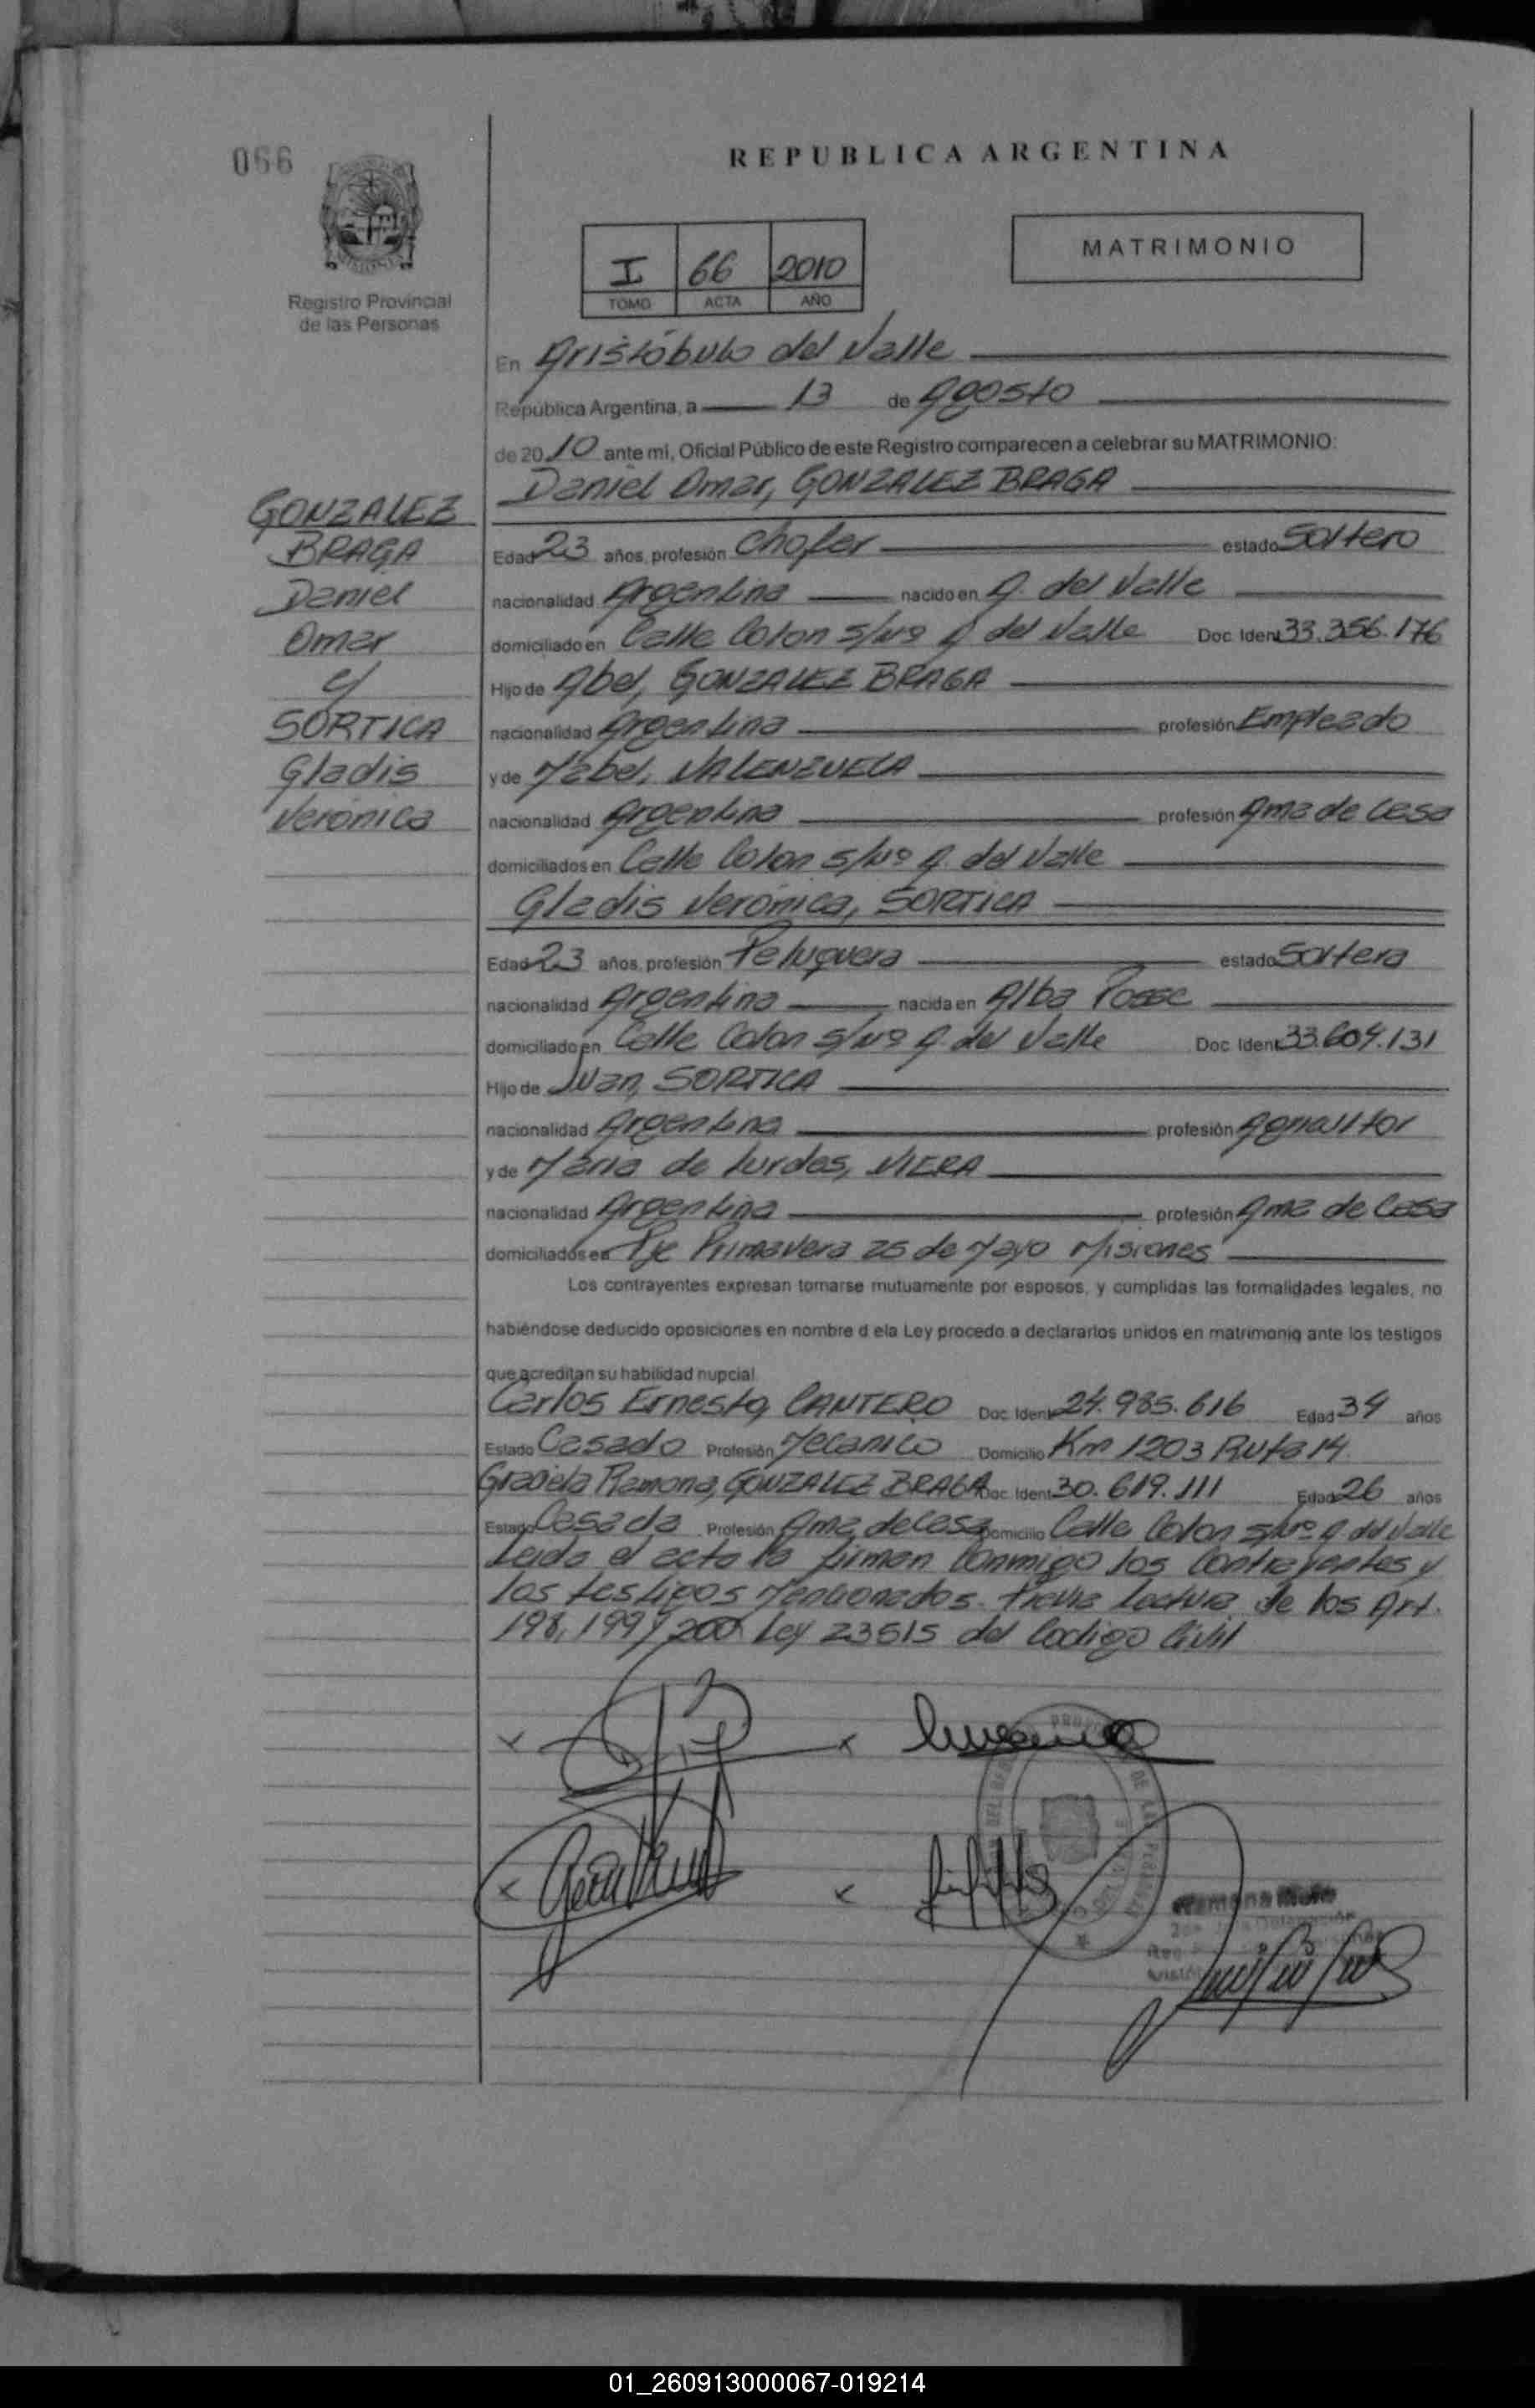 066
REPUBLICA ARGENTINA
Registro Provincial
de las Personas
I 66 2010
TOMO ACTA AÑO
MATRIMONIO
En Aristóbulo del Valle
República Argentina, a 13 de Agosto
de 2010 ante mi, Oficial Público de este Registro comparecen a celebrar su MATRIMONIO:
Daniel Omar, GONZALEZ BRAGA
GONZALEZ
BRAGA
Daniel
Omar
y
SORTICA
Gladis
Verónica
Edad 23 años, profesión Chofer estado Soltero
nacionalidad Argentina nacido en A. del Valle
domiciliado en Calle Colon s/Nº A. del Valle Doc. Ident 33.356.176
Hijo de Abel, GONZALEZ BRAGA
nacionalidad Argentina profesión Empleado
y de Mabel, VALENZUELA
nacionalidad Argentina profesión Ama de Casa
domiciliados en Calle Colon s/Nº A. del Valle
Gladis Verónica, SORTICA
Edad 23 años, profesión Peluquera estado Soltera
nacionalidad Argentina nacida en Alba Posse
domiciliado en Calle Colon s/Nº A. del Valle Doc. Ident 33.609.131
Hijo de Juan, SORTICA
nacionalidad Argentina profesión Agricultor
y de Maria de Lurdes, VIERA
nacionalidad Argentina profesión Ama de Casa
domiciliados en Pje Primavera 25 de Mayo Misiones
Los contrayentes expresan tomarse mutuamente por esposos, y cumplidas las formalidades legales, no
habiéndose deducido oposiciones en nombre d ela Ley procedo a declararlos unidos en matrimonio ante los testigos
que acreditan su habilidad nupcial
Carlos Ernesto, CANTERO Doc. Ident 24.985.616 Edad 34 años
Estado Casado Profesión Mecanico Domicilio Km 1203 Ruta 14
Graciela Ramona, GONZALEZ BRAGA Doc. Ident 30.619.111 Edad 26 años
Estado Casada Profesión Ama de casa Domicilio Calle Colon s/Nº A. del Valle
Leida el acta la firman conmigo los contrayentes y
los testigos Mencionados. Previa lectura de los Art.
198, 199 y 200 Ley 23515 del Codigo Civil
01_260913000067-019214